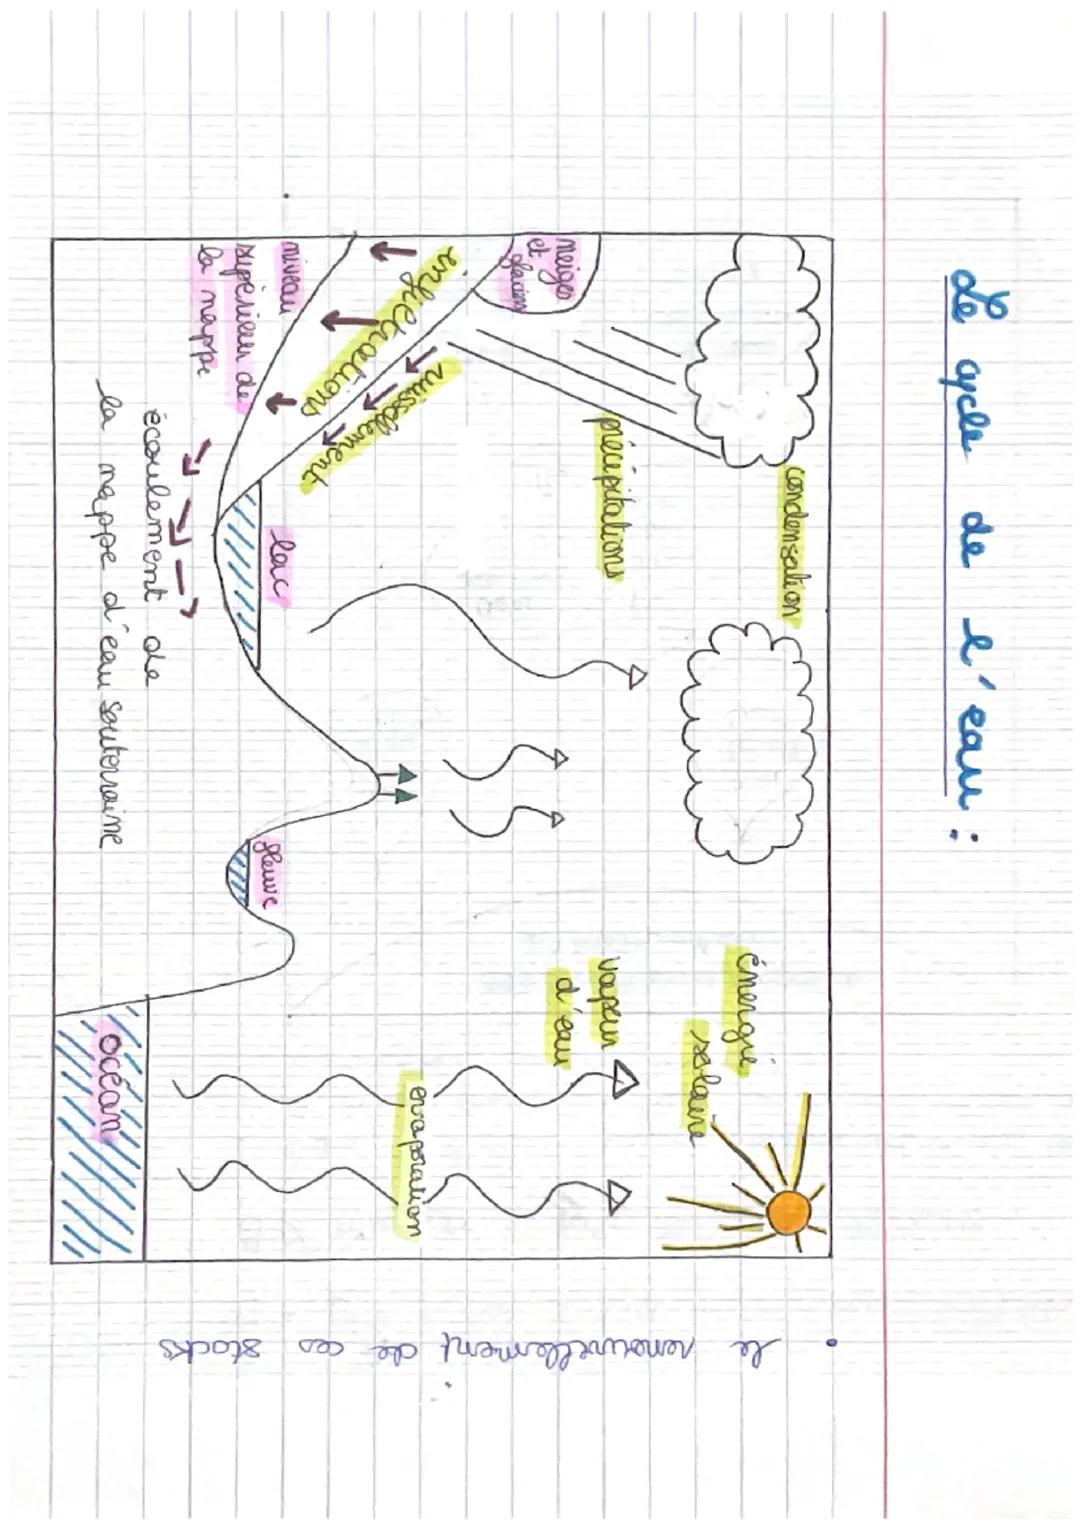 Le cycle de l'eau :
condensation
énergie
solaire
vapeur
d'eau
précipitations
neiges
et
glaciers
infiltrations
ruissellement
évaporation
lac
fleuve
niveau
supérieur de
la nappe
écoulement de
la nappe d'eau souterraine
océan
• le renouvellement de ces stocks